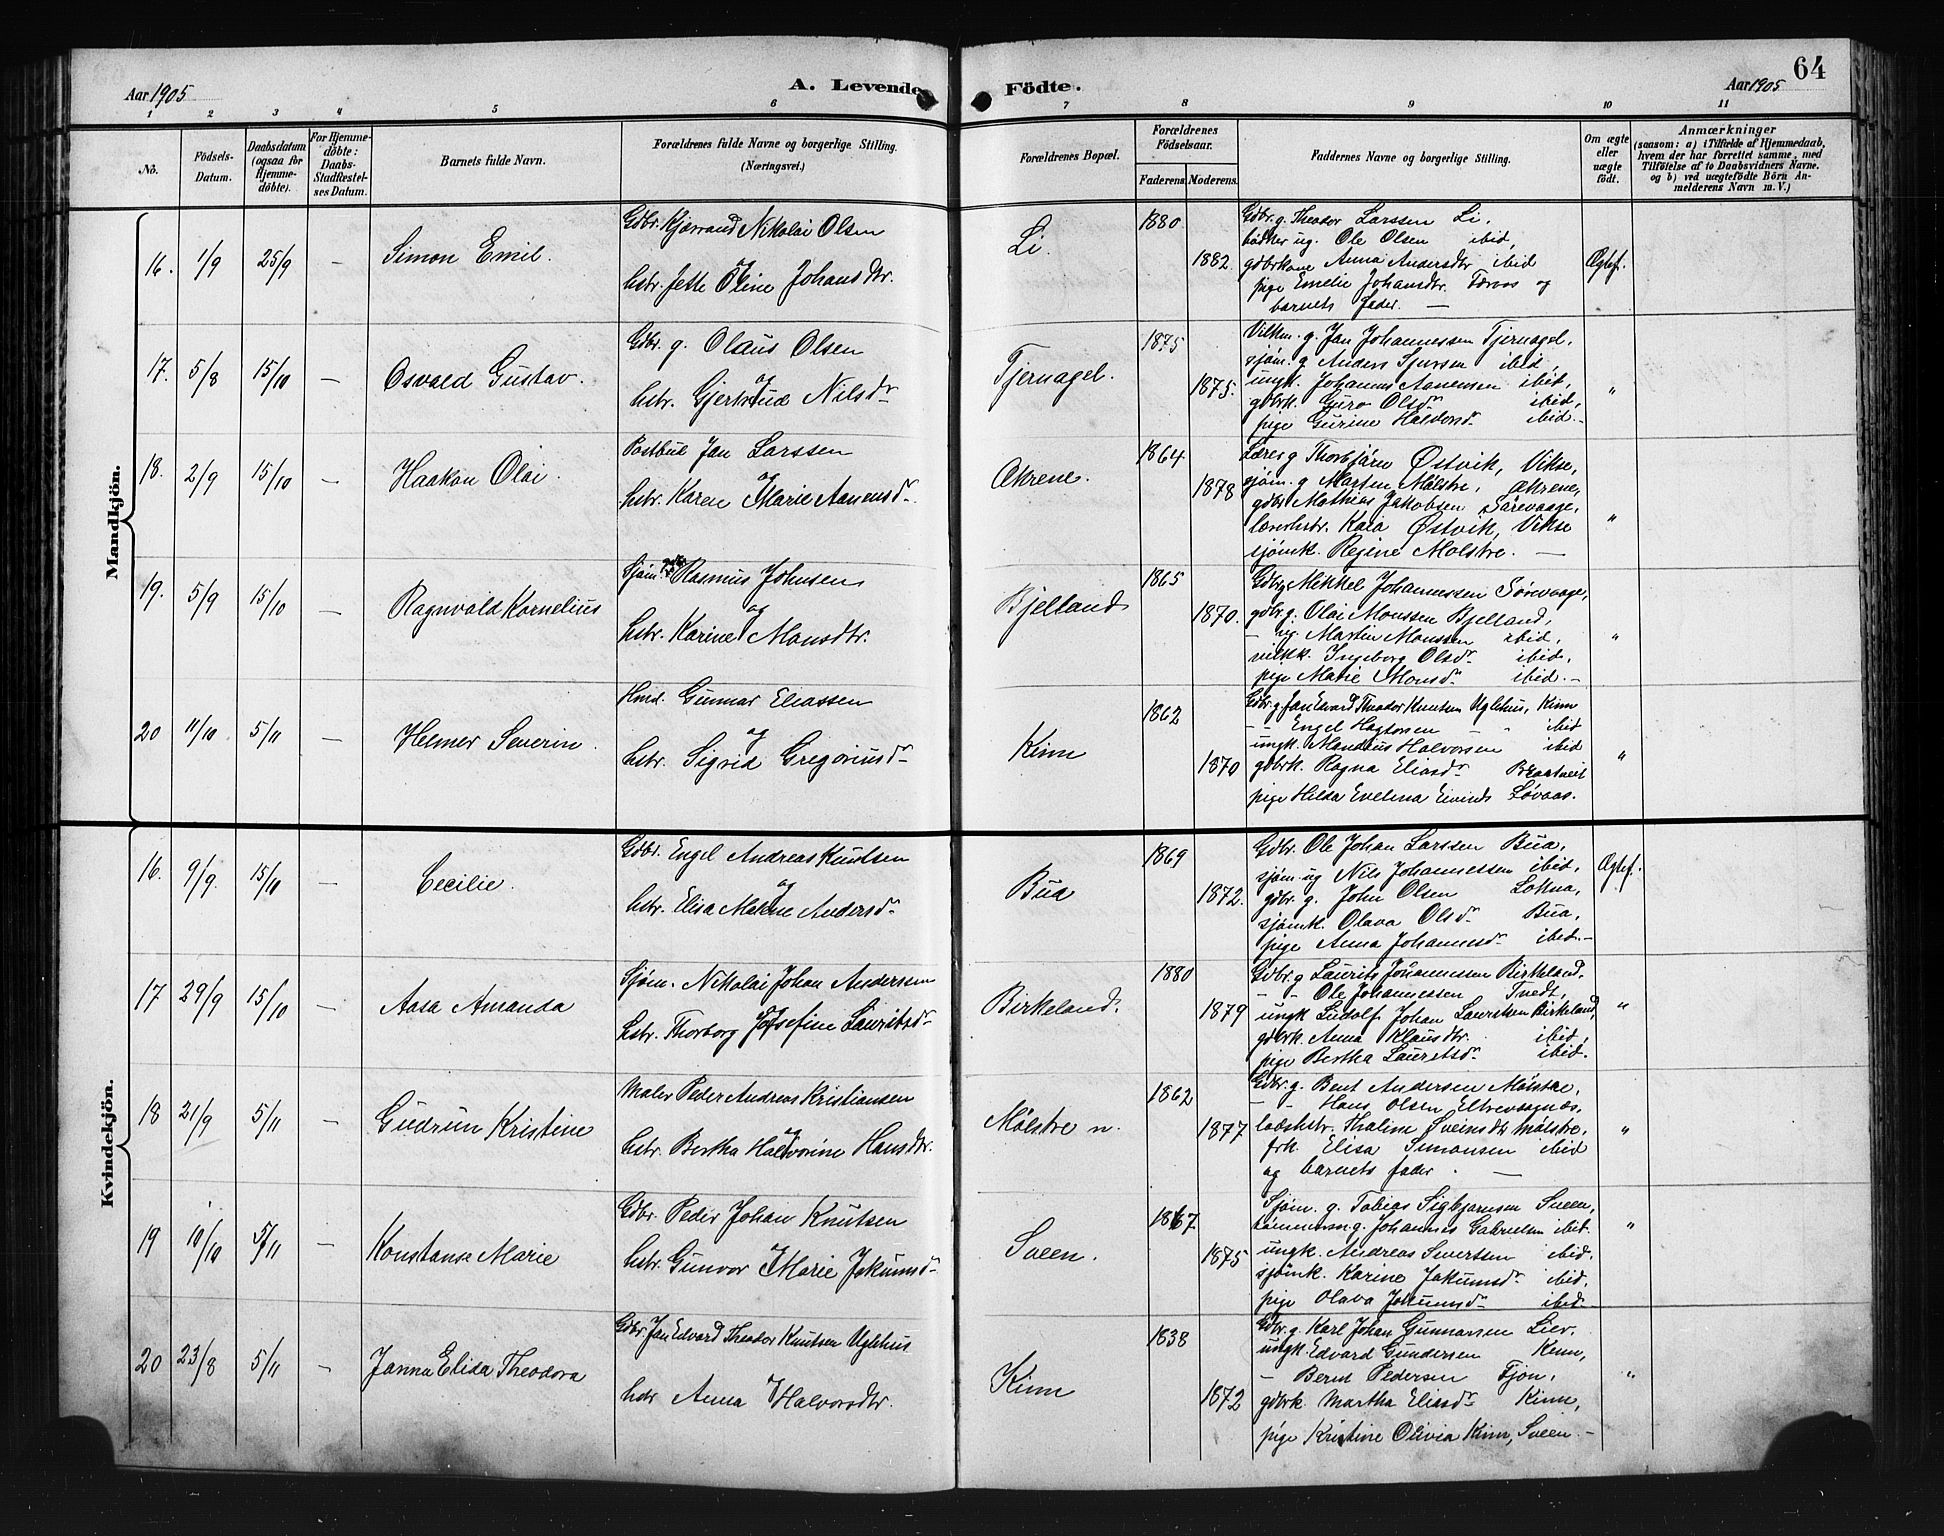 Aar 1905 A. Levende Födte. Aar 1905 64
1 2 3 4 5 6 7 8 9 10 11
No. Födsels-Datum. Daabsdatum (ogsaa for Hjemmedöbte). For Hjemmedöbte: Daabs-Stadfestelses Datum. Barnets fulde Navn. Forældrenes fulde Navne og borgerlige Stilling. (Næringsvei.) Forældrenes Bopæl. Forældrenes Födselsaar. Faderens. Moderens. Faddernes Navne og borgerlige Stilling. Om ægte eller uægte födt. Anmærkninger (saasom: a) i Tilfælde af Hjemmedaab, hvem der har forrettet samme, med Tilföielse af to Daabsvidners Navne. og b) ved uægtefödte Börn Anmelderens Navn m. V.)
Mandkjön.
16. 1/9 25/9 – Simon Emil.
Gdbr. Kjærrand Nikolai Olsen
og
hstr. Jette Oline Johansdtr.
Li. 1880 1882.
Gdbr. g. Theodor Larssen Li,
bödker ug. Ole Olsen ibid,
gdbrkone Anna Andersdtr ibid
pige Emelie Johansdtr. og
barnets fader. —
Ægtef.
17. 5/8 15/10 – Osvald Gustav.
Gdbr. g. Olaus Olsen
og
hstr. Gjertrud Nilsdr
Tjernagel. 1875 1875.
g Jan Johannessen Tjernagel,
sjöm. g Anders ibid,
ungk. Johannes Aanensen ibid,
gdbrk. Guro Olsdr ibid,
pige Gurine Halvorsdr ibid.–
"
18. 2/9 15/10 – Haakon Olai.
Jan Larssen
og
hstr. Karen Marie Aanensdr.
Økrene. 1864 1878
Lærer g Thorbjörn Østvik, Vikse,
sjöm. g Marten Mölstre, Økrene,
gdbr Mathias Jakobsen
lærerhstr. Kaia Østvik, Vikse
sjömk. Regine Molstre. —
"
19. 5/9 15/10 – Ragnvald Kornelius
Sjöm. Rasmus Johnsen
og
hstr. Karine Monsdtr.
Bjelland 1865 1870.
Gdbr g Mikkel Johannessen Sörevaage,
gdbr g. Olai Monssen Bjelland,
– ug. Martin Monssen ibid,
Ingeborg Olsdr ibid,
pige Marie Monsdr ibid.–
"
20 11/10 5/11 – Helmer Severin.
Hmd. Gunnar Eliassen
og
hstr. Sigrid Gregoriusdr
Kinn 1862 1870
Gdbr. g. Jan Edvard Theodor Knutsen Uglehus, Kinn
– Engel ibid
ungk. Mandius Halvorsen ibid
gdbrk. Ragna Eliasdr
pige Hilda Evelina Løvaas.
"
Kvindekjön.
16. 9/9. 15/10 – Cecilie.
Gdbr. Engel Andreas Knutsen
og
hstr. Elisa Malene Andersdr
Bua 1869 1872.
Gdbr. Ole Johan Larssen Bua,
sjöm. ug Nils Johannessen ibid,
gdbr. g. John Olsen Lokna,
sjömk. Olava Olsdr Bua,
pige Anna Johannesdr ibid.–
Ægtef.
17 29/9 15/10 – Aasa Amanda
Sjöm. Nikolai Johan Anderssen
og
hstr. Thorborg Josefine Lauritsdr
Birkeland. 1880 1879
Gdbr. g Laurits Johannessen Birkeland,
– – Ole Johannessen Tvedt,
ungk Ludolf Johan Lauritsen Birkeland,
gdbrk. Anna Klausdtr. ibid,
pige Bertha Lauritsdr ibid.
"
18 21/9 5/11 – Gudrun Kristine
Maler Peder Andreas Kristiansen
og
hstr. Bertha Halvorine Hansdtr.
Mölstre n. 1862 1877
Gdbr. g. Bent Andersen Mölstre,
– – Hans Olsen
Thaline Sveinsdtr Mölstre,
frk. Elisa Simonsen ibid
og barnets fader. —
"
19 10/10 5/11 – Konstanse Marie
Gdbr. Peder Johan Knutsen
og
hstr. Gunvor Marie Jakumsdr
Sveen. 1867. 1875
Sjöm. g. Tobias Sigbjørnsen Sveen,
tömmerm. g. Johannes Gabrielsen ibid.
ungk. Andreas Sivertsen ibid.
sjömk. Karine Jakumsdr ibid,
pige Olava Jakumsdr ibid.
"
20 23/8 5/11 – Janna Elida Theodora
Gdbr. Jan Edvard Theodor Knutsen Uglehus
og
hstr Anna Halvorsdtr.
Kinn 1838 1872
Gdbr. g. Karl Johan Gunnarsen Lier,
ungk. Edvard Gundersen Kinn,
– Bernt Pedersen Tjon,
gdbrk. Martha Eliasdr Kinn,
pige Kristine Olivia Kinn, Sveen.–
"